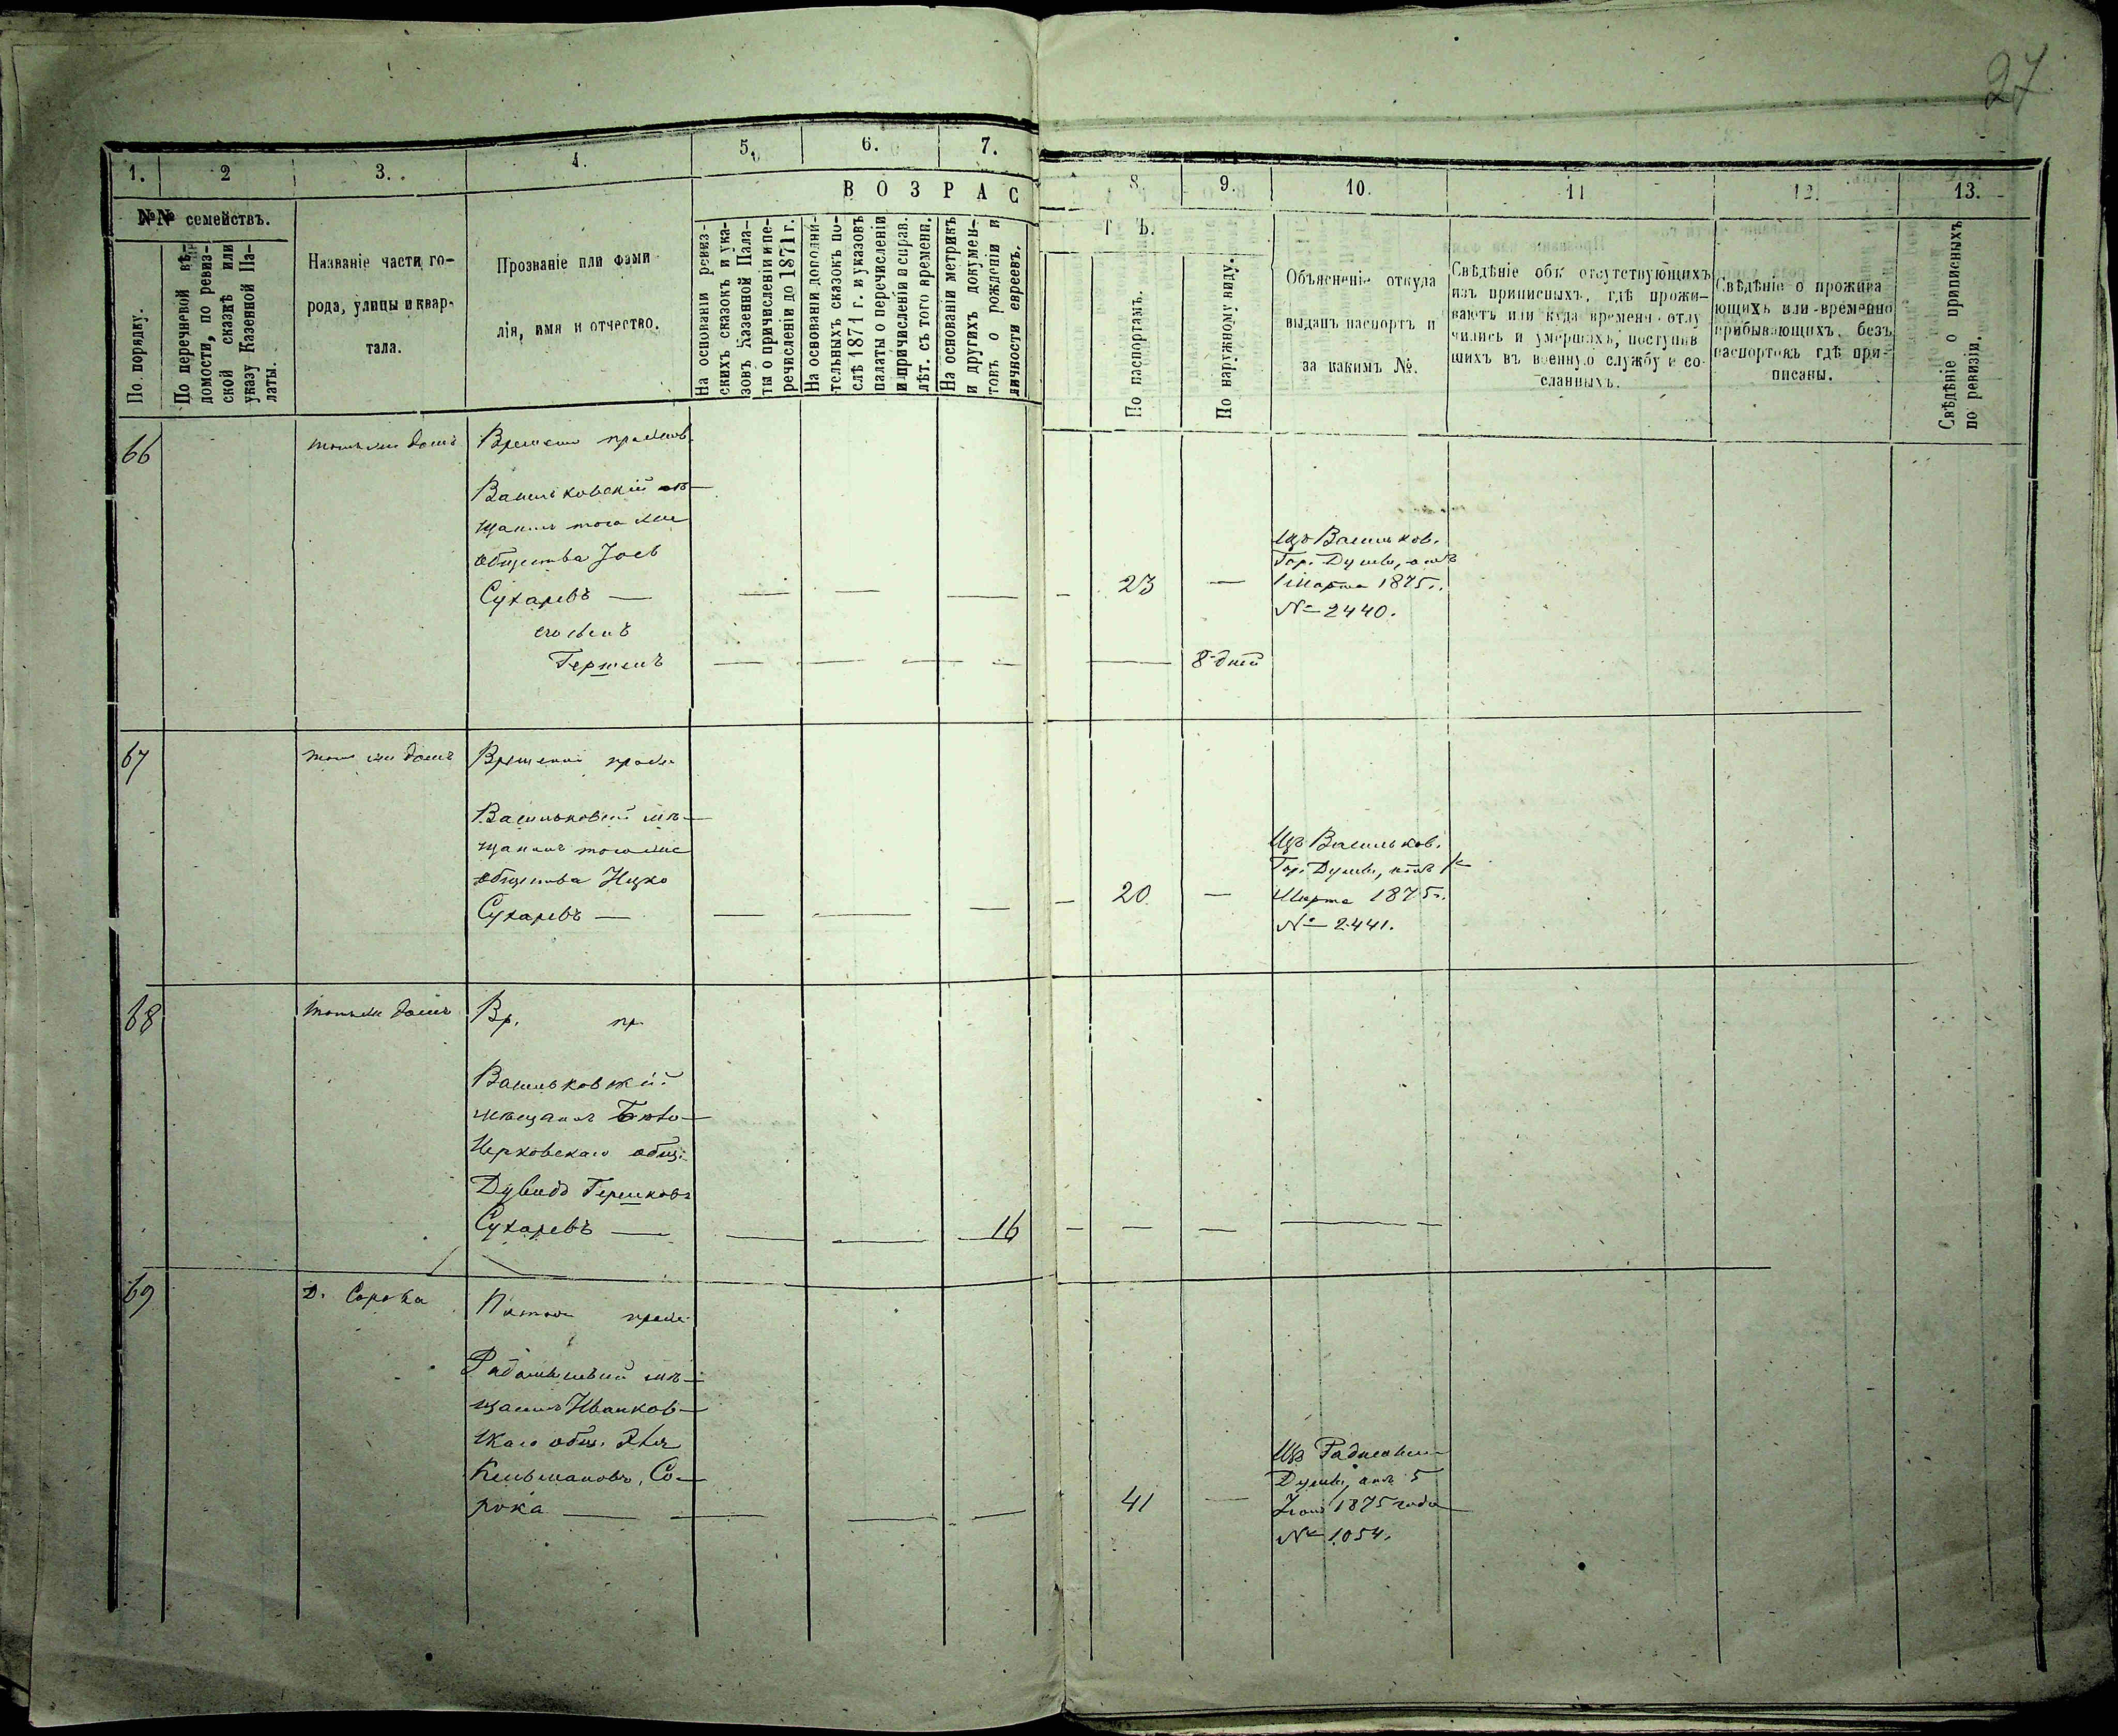 27
1. 2 3. 4. 5. 6. 7. 8. 9. 10. 11 12. 13.
В О З Р А С Т Ъ.
№№ семействъ.
По порядку.
По перечневой вѣ-
домости, по ревиз-
ской сказкѣ или
указу Казенной Па-
латы.
Названіе части го-
рода, улицы и квар-
тала.
Прозваніе или фами
лія, имя и отчество.
На основаніи ревиз-
скихъ сказокъ и ука-
зовъ Казенной Пала-
ты о причисленіи и пе-
речисленіи до 1871 г.
На основаніи дополни-
тельныхъ сказокъ по-
слѣ 1871 г. и указовъ
палаты о перечисленіи
и причисленіи и справ.
лѣт. съ того времени.
На основаніи метрикъ
и другихъ докумен-
товъ о рожденіи и
личности евреевъ.
По паспортамъ.
По наружному виду.
Объясненіе откуда
выданъ паспортъ и
за какимъ №.
Свѣдѣніе объ отсутствующихъ
изъ приписныхъ, гдѣ прожи-
ваютъ или куда временн отлу
чились и умершихъ, поступив
шихъ въ военную службу и со-
сланныхъ.
Свѣдѣніе о прожива
ющихъ или временно
прибывающихъ, безъ
паспортовъ гдѣ при-
писаны.
Свѣдѣніе о приписныхъ
по ревизіи.
66
томъ же домѣ
Временно
Васильковскій мѣ-
щанинъ того же
общества
Сухаревъ — 23 —
Изъ Васильков.
Гор. Думы, отъ
1 Марта 1875 г.
№ 2440.
его сынъ
8 дней
67
том же домѣ
Временно прож.
Васильковскій мѣ-
щанинъ того же
общества Ицко
Сухаревъ — 20 —
Изъ Васильков.
Гор. Думы, отъ 1
Марта 1875 г.
№ 2441.
68
томъ же домѣ
Вр. пр.
Васильковскій
мѣщанинъ Бѣло-
Церковскаго общ.
Дувидъ Гершковъ
Сухаревъ — 16
69
д. Сорока
прож.
мѣ-
щанинъ Иванков-
скаго общ.
Кельмановъ, Со-
рока — 41 —
Изъ
Думы, отъ 5
1875 года
№ 1054.